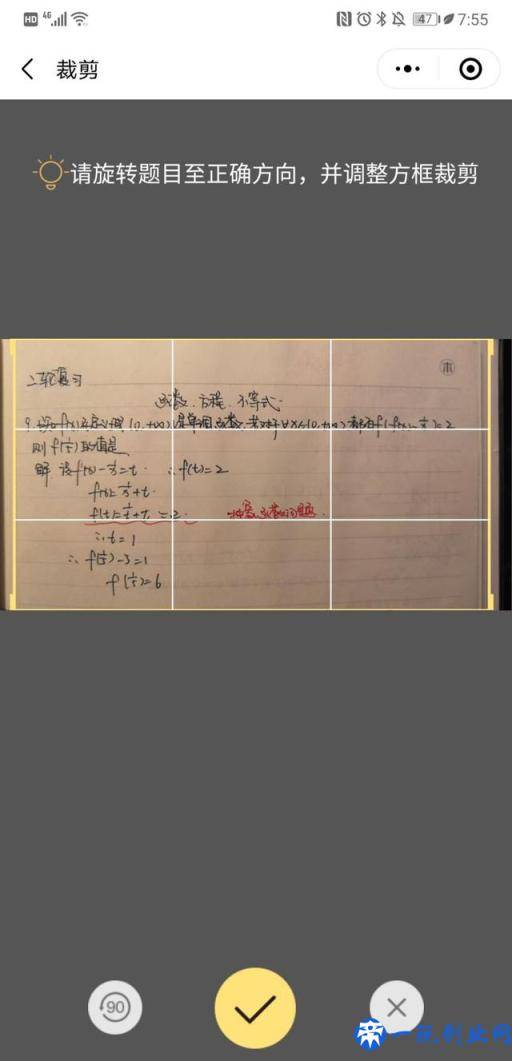 HD 4G 47 7:55
裁剪
请旋转题目至正确方向，并调整方框裁剪
二轮复习
函数、方程、不等式
9. 设f(x)定义域(0,+∞),是单调函数,若对于∀x∈(0,+∞)都有f(f(x)-1/x)=2
则f(1/5)的值是
解：设f(x)-1/x=t ∴f(t)=2
f(x)=1/x+t
f(t)=1/t+t=2
∴t=1
∴f(1/5)-5=1
f(1/5)=6
90
一玩创业网